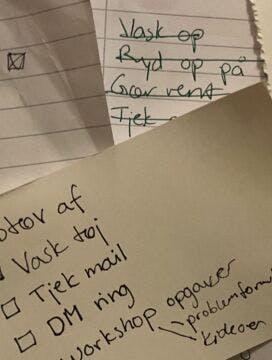 Vask op
Ryd op på
Gør rent
Tjek
af
Vask tøj
Tjek mail
DM ring
workshop opgaver
problemform
kideoer